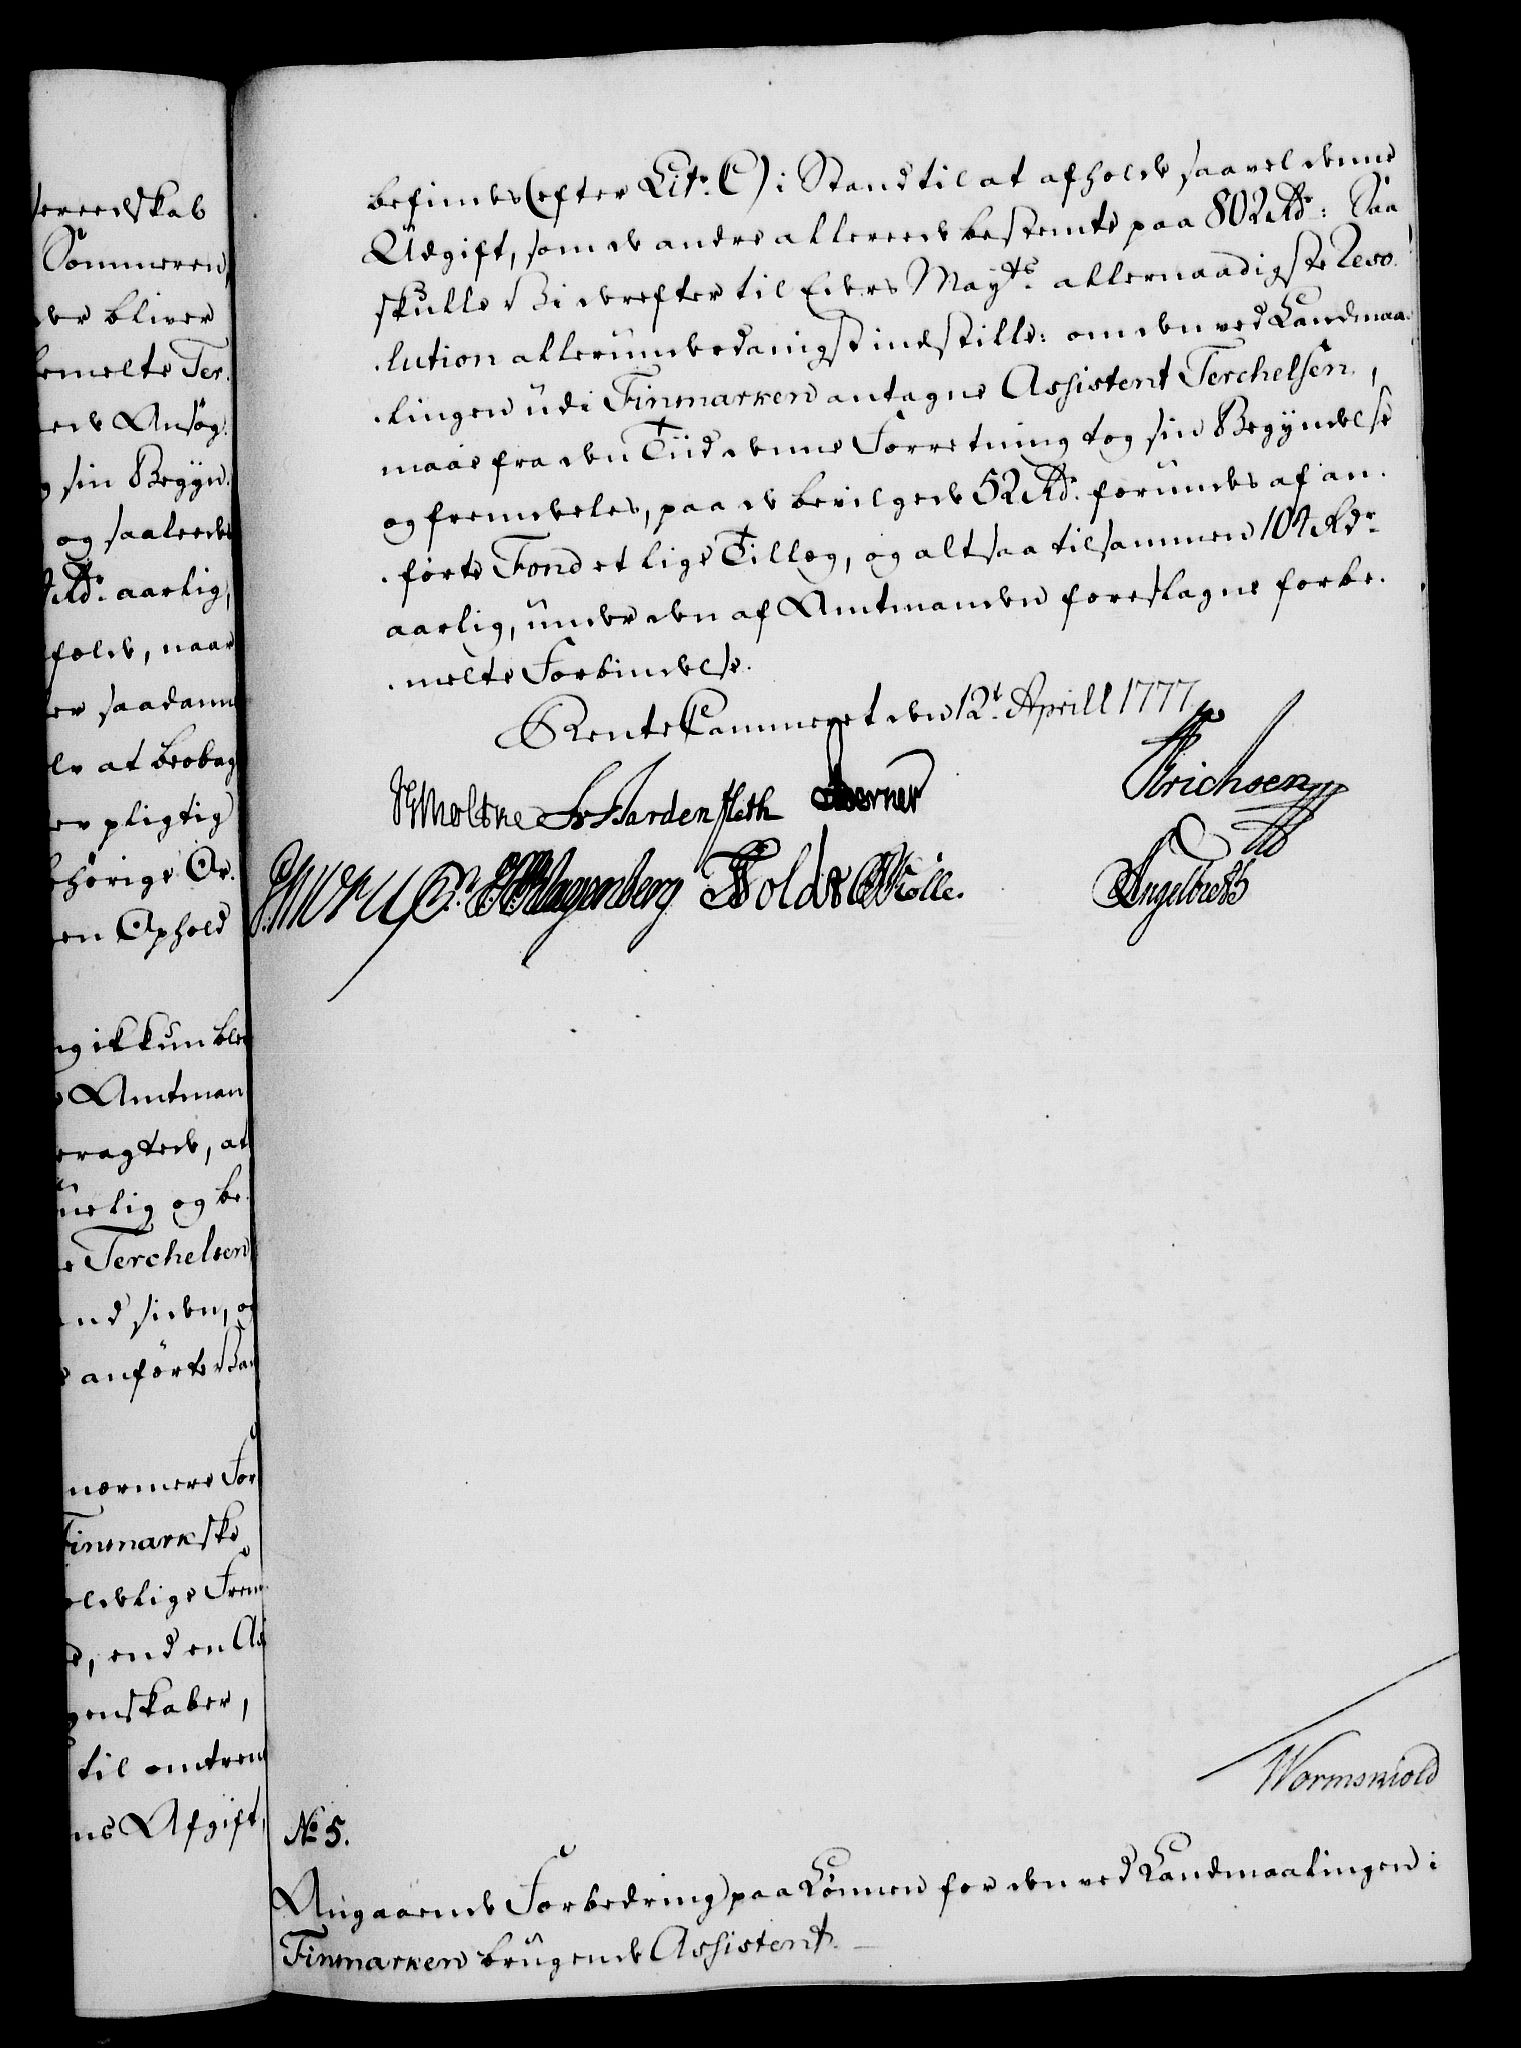 ereedskab
Sommeren,
der bliver
bemelte Ter-
ede Ansøg-
g sin Begyn-
og saaleedes
Rdr. aarlig,
folde, naar
er saadann
at beobag
er pligtig
ehørige Or-
en Ophold
ng ikkun ble
Amtman
eragtede, at
uelig og be-
e Terchelsen
nd siden, og
e anførte Vam
nærmere For
Finmarkske
eldelige Frem
d, end en As
genskaber,
til omtrent
ns Afgift,
befindes (efter Litr. C) i Stand til at afholde saavel denne
Udgift, som de andre allereede bestemte paa 802 Rdr: Saa
skulle Vi derefter til Eders Mayts. allernaadigste Reso-
-lution allerunderdanigst indstille: om den ved Landmaa-
-lingen udi Finmarken antagne Assistent Terchelsen,
maae fra den Tiid denne Forretning tog sin Begyndelse
og fremdeles, paa de bevilgede 52 Rdr. forundes af an-
-førte Fond et lige Tillæg, og altsaa tilsammen 104 Rdr.
aarlig, under den af Amtmanden foreslagne forbe-
-melte Forbindelse.
RenteKammeret den 12t. Aprill 1777.
HMoltke Hardenfleth Berner Erichsen
Wagenberg Holdt Kølle. Angelbreth
Wormskiold
No. 5.
Angaaende Forbedring paa Lønnen for den ved Landmaalingen i
Finmarken brugende Assistent.